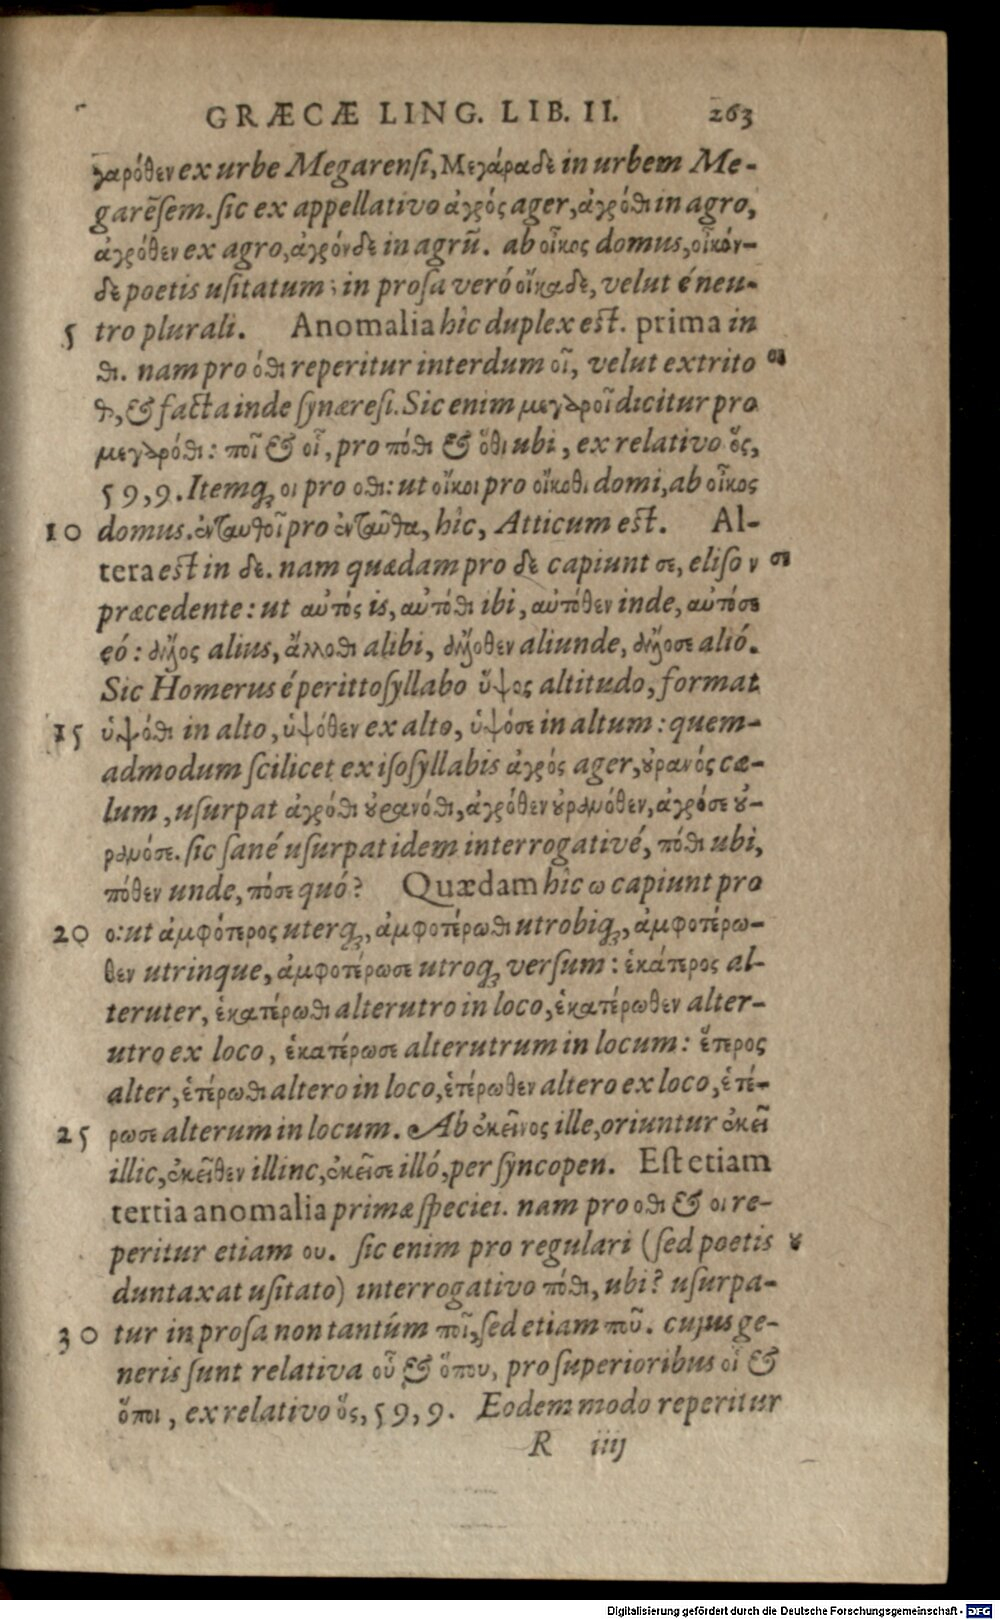 GRÆCÆ LING. LIB. II. 263
γαρόθεν ex urbe Megarensi, Μεγάραδε in urbem Me-
garẽsem. sic ex appellativo ἀγρός ager, ἀγρόθι in agro,
ἀγρόθεν ex agro, ἀγρόνδε in agrũ. ab οἶκος domus, οἶκόν-
δε poetis usitatum; in prosa veró οἴκαδε, velut é neu-
5 tro plurali. Anomalia hîc duplex est. prima in
θι. nam pro όθι reperitur interdum οῖ, velut extrito οι
θ, & facta inde synæresi. Sic enim μεγαροῖ dicitur pro
μεγαρόθι: ποῖ & οἷ, pro πόθι & ὅθι ubi, ex relativo ὅς,
59, 9. Itemq; οι pro οθι: ut οἴκοι pro οἴκοθι domi, ab οἶκος
10 domus. ἐνταυθοῖ pro ἐνταῦθα, hîc, Atticum est. Al-
tera est in δε. nam quædam pro δε capiunt σε, eliso ν σε
præcedente: ut αὐτός is, αὐτόθι ibi, αὐτόθεν inde, αὐτόσε
eó: ἄλλος alius, ἄλλοθι alibi, ἄλλοθεν aliunde, ἄλλοσε alió.
Sic Homerus é perittosyllabo ὕψος altitudo, format
15 ὑψόθι in alto, ὑψόθεν ex alto, ὑψόσε in altum: quem-
admodum scilicet ex isosyllabis ἀγρός ager, ȣ̓ρανός cæ-
lum, usurpat ἀγρόθι ȣ̓ρανόθι, ἀγρόθεν ȣ̓ρανόθεν, ἀγρόσε ȣ̓-
ρανόσε. sic sané usurpat idem interrogativé, πόθι ubi,
πόθεν unde, πόσε quó? Quædam hîc ω capiunt pro
20 ο: ut ἀμφότερος uterq;, ἀμφοτέρωθι utrobiq;, ἀμφοτέρω-
θεν utrinque, ἀμφοτέρωσε utroq; versum: ἑκάτερος al-
teruter, ἑκατέρωθι alterutro in loco, ἑκατέρωθεν alter-
utro ex loco, ἑκατέρωσε alterutrum in locum: ἕτερος
alter, ἑτέρωθι altero in loco, ἑτέρωθεν altero ex loco, ἑτέ-
25 ρωσε alterum in locum. Ab ἐκεῖνος ille, oriuntur ἐκεῖ
illic, ἐκεῖθεν illinc, ἐκεῖσε illó, per syncopen. Est etiam
tertia anomalia primæ speciei. nam pro οθι & οι re-
peritur etiam ου. sic enim pro regulari (sed poetis ȣ
duntaxat usitato) interrogativo πόθι, ubi? usurpa-
30 tur in prosa non tantúm ποῖ, sed etiam ποῦ. cujus ge-
neris sunt relativa οὗ & ὅπου, pro superioribus οἷ &
ὅποι, ex relativo ὅς, 59, 9. Eodem modo reperitur
R iiij
Digitalisierung gefördert durch die Deutsche Forschungsgemeinschaft - DFG